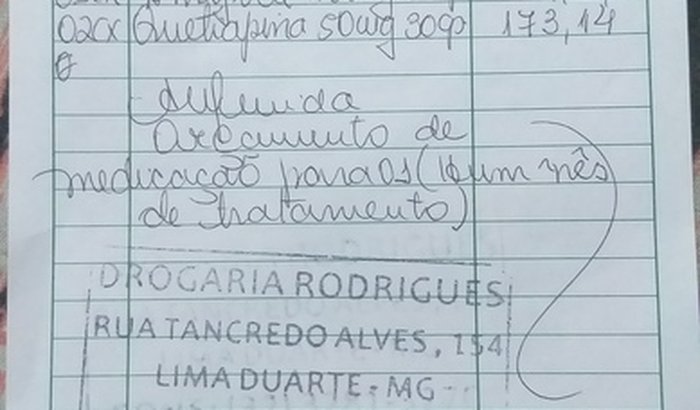 02cx Quetiapina 50mg 30cp 173,14
Orçamento de
medicação para 01 (um mês
de tratamento)
DROGARIA RODRIGUES
RUA TANCREDO ALVES, 154
LIMA DUARTE - MG